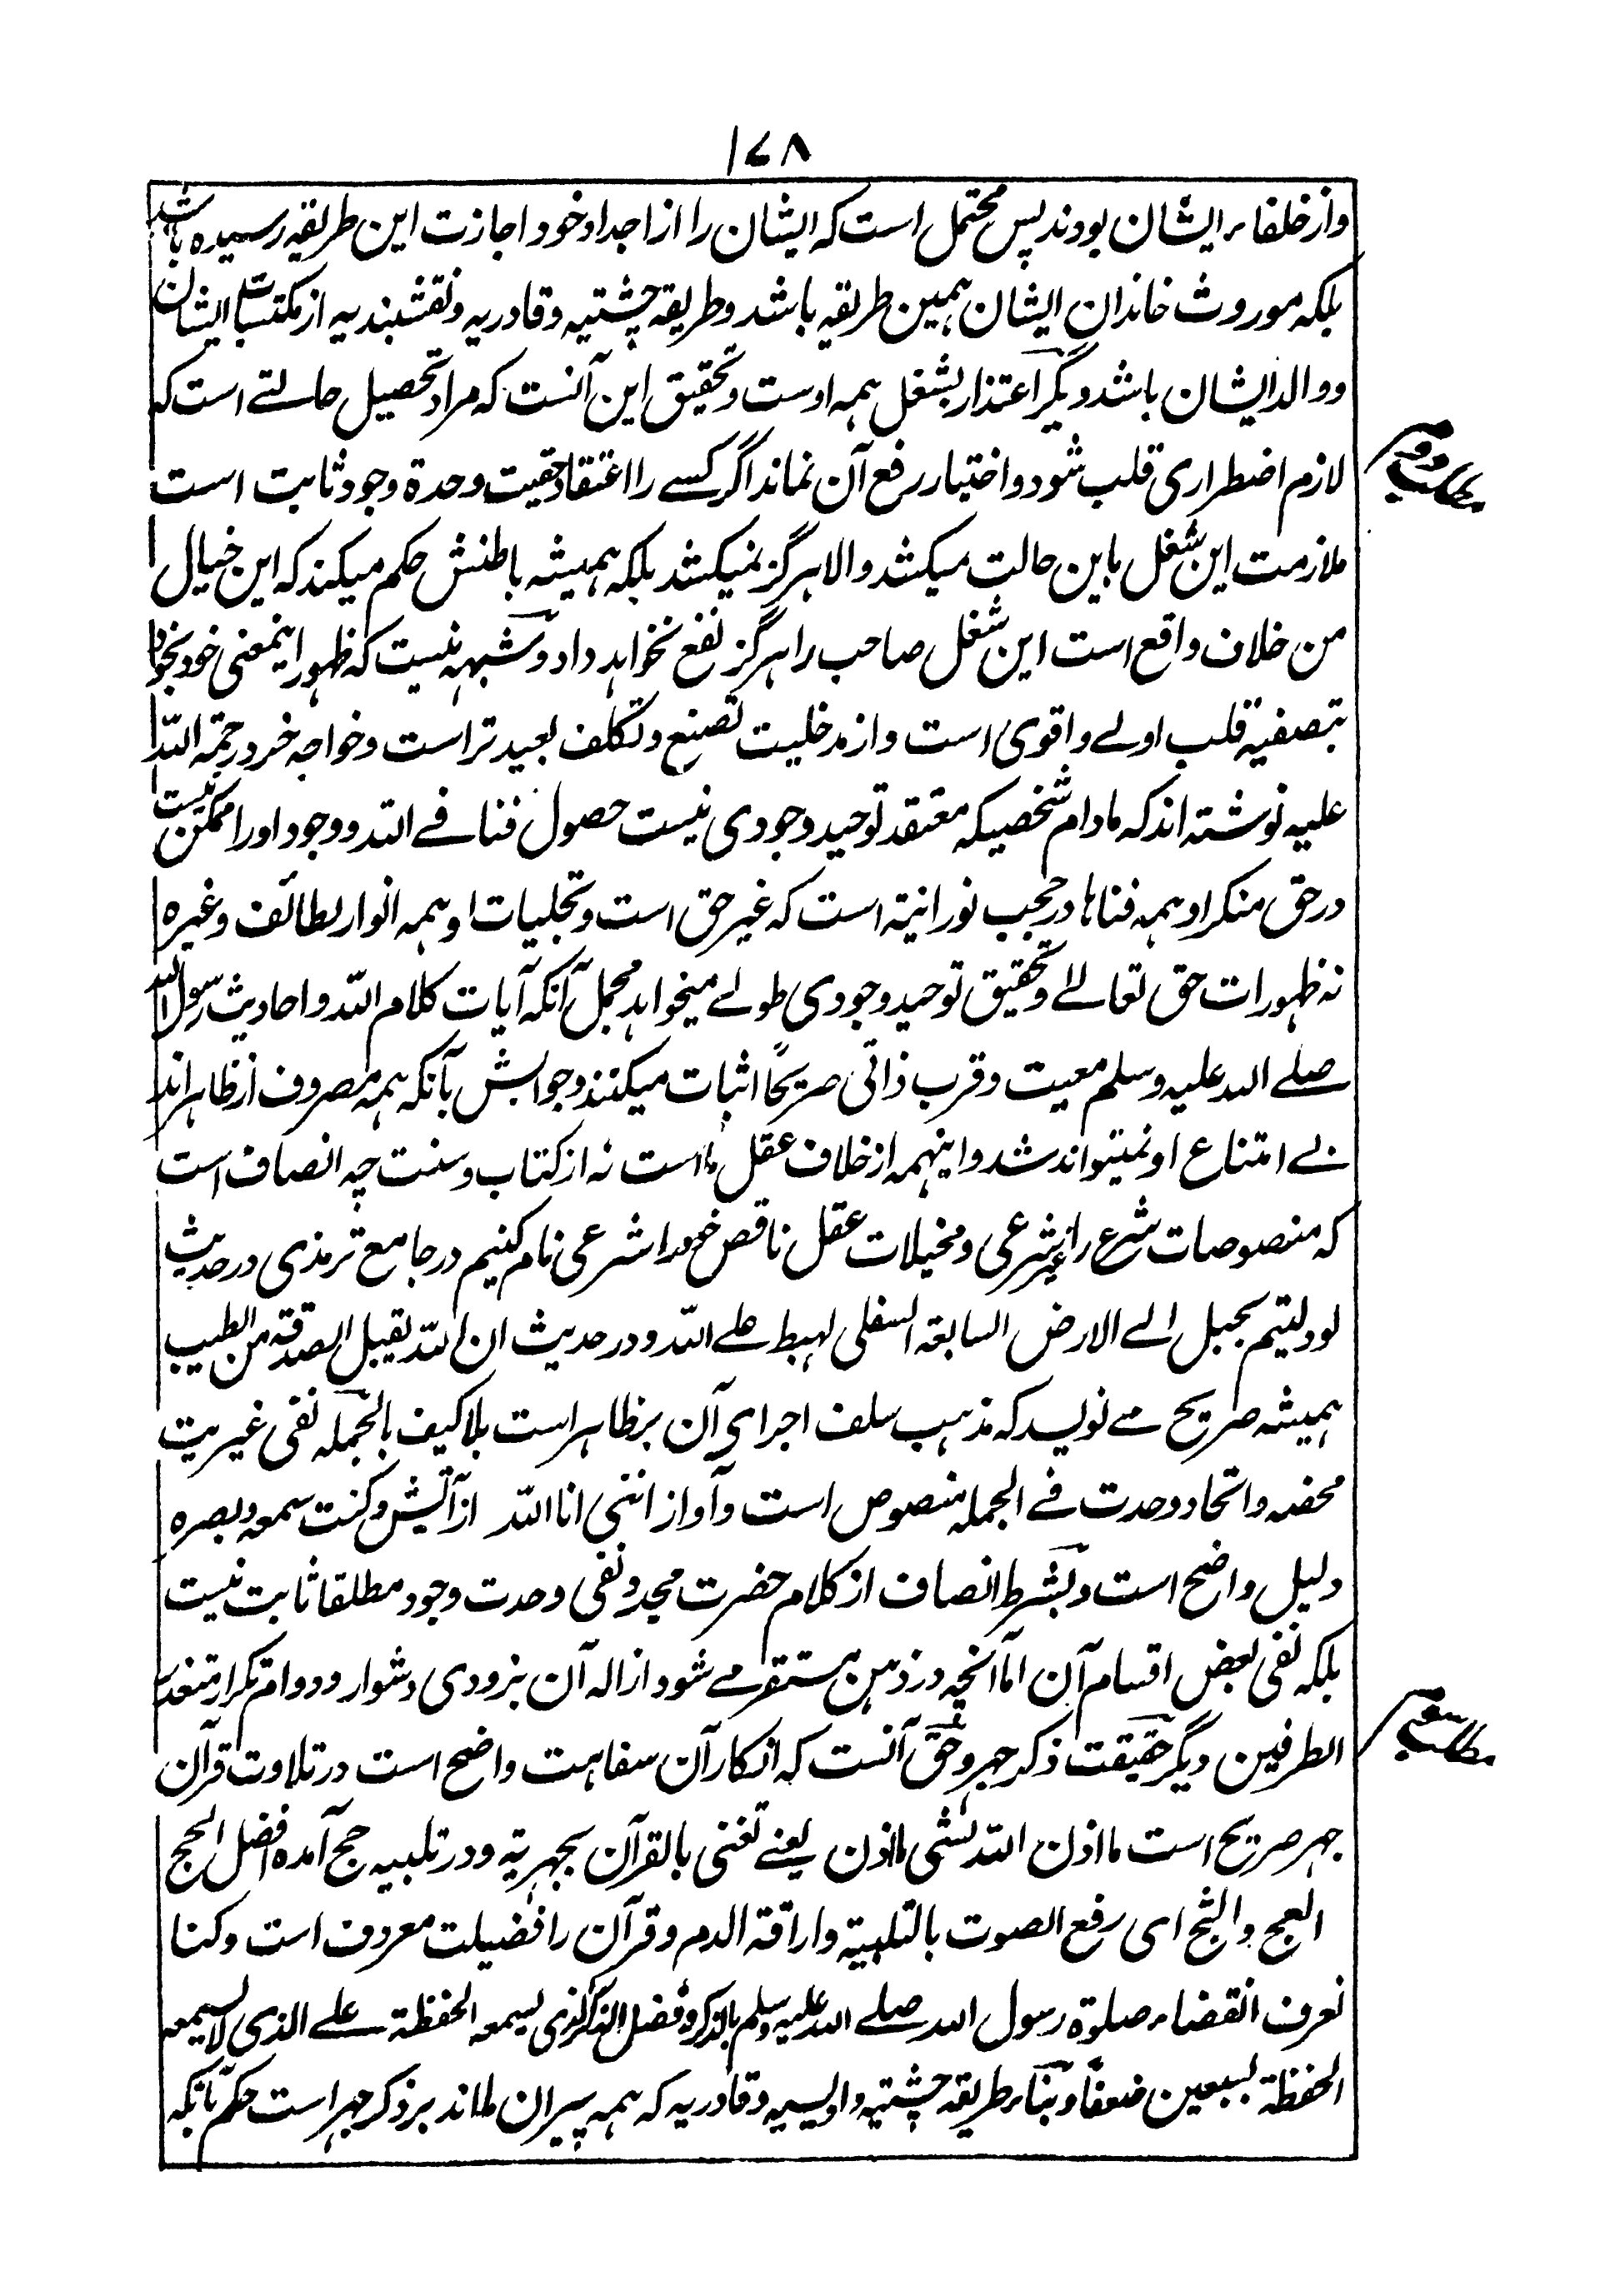 ۱۷۸
واز خلفاء ایشان بودند پس محتمل است که ایشان را از اجداد خود اجازت این طریقه رسیده باشد
بلکه موروث خاندان ایشان همین طریقه باشد و طریقه چشتیه و قادریه و نقشبندیه از مکتسبات ایشان
و والد ایشان باشد دیگر اعتذار بشغل همه اوست و تحقیق این آنست که مراد تحصیل حالتے است که
لازم اضطراری قلب شود و اختیار رفع آن نماند اگر کسے را اعتقاد حقیت وحدة وجود ثابت است
مطلب دوم
ملازمت این شغل باین حالت میکشد والا هرگز نمیکشد بلکه همیشه باطنش حکم میکند که این خیال
من خلاف واقع است این شغل صاحب را هرگز نفع نخواهد داد و شبهه نیست که ظهور اینمعنی خود بخود
بتصفیة قلب اولے و اقوی است و از مدخلیت تصنع و تکلف بعید تر است و خواجه خرد رحمة الله
علیه نوشته اند که مادام شخصیکه معتقد توحید وجودی نیست حصول فنا فے الله و وجود او را ممکن نیست
در حق منکر او همه فناها در حجب نورانیة است که غیر حق است و تجلیات او همه انوار لطائف و غیره
نه ظهورات حق تعالے و تحقیق توحید وجودی طولے میخواهد مجمل آنکه آیات کلام الله و احادیث رسول الله
صلے الله علیه وسلم معیت و قرب ذاتی صریحاً اثبات میکنند و جوابش بآنکه همه مصروف از ظاهر اند
بے امتناع او نمیتواند شد و اینهمه از خلاف عقل ما است نه از کتاب و سنت چه انصاف است
که منصوصات شرع را غیر شرعی و مخیلات عقل ناقص خود را شرعی نام کنیم در جامع ترمذی در حدیث
لو دلیتم بحبل الے الارض السابعة السفلی لهبط علے الله و در حدیث ان الله یقبل الصدقة من الطیب
همیشه صریح مے نویسد که مذهب سلف اجرای آن بر ظاهر است بلا کیف بالجمله نفی غیریت
محضه و اتحاد و وحدت فے الجمله منصوص است و آواز اننی انا الله از آتش و کنت سمعه و بصره
دلیل واضح است و بشرط انصاف از کلام حضرت مجدد نفی وحدت وجود مطلقا ثابت نیست
بلکه نفی بعض اقسام آن اما آنچه در ذهن مستقر مے شود ازاله آن بزودی دشوار و دوام تکرار متعذر
الطرفین دیگر حقیقت ذکر جهر و حق آنست که انکار آن سفاهت واضح است در تلاوت قرآن
مطلب سوم
جهر صریح است ما اذن الله لشی ما اذن یعنے تغنی بالقرآن یجهر به و در تلبیه حج آمده افضل الحج
العج والثج ای رفع الصوت بالتلبیة و اراقة الدم و قرآن را فضیلت معروف است و کنا
نعرف انقضاء صلوة رسول الله صلے الله علیه وسلم بالذکر و فضل الذکر الذی یسمعه الحفظة علے الذی لا یسمعه
الحفظة بسبعین ضعفاً و بناء طریقه چشتیه و اویسیه و قادریه که همه پیران ما اند بر ذکر جهر است حکم بآنکه